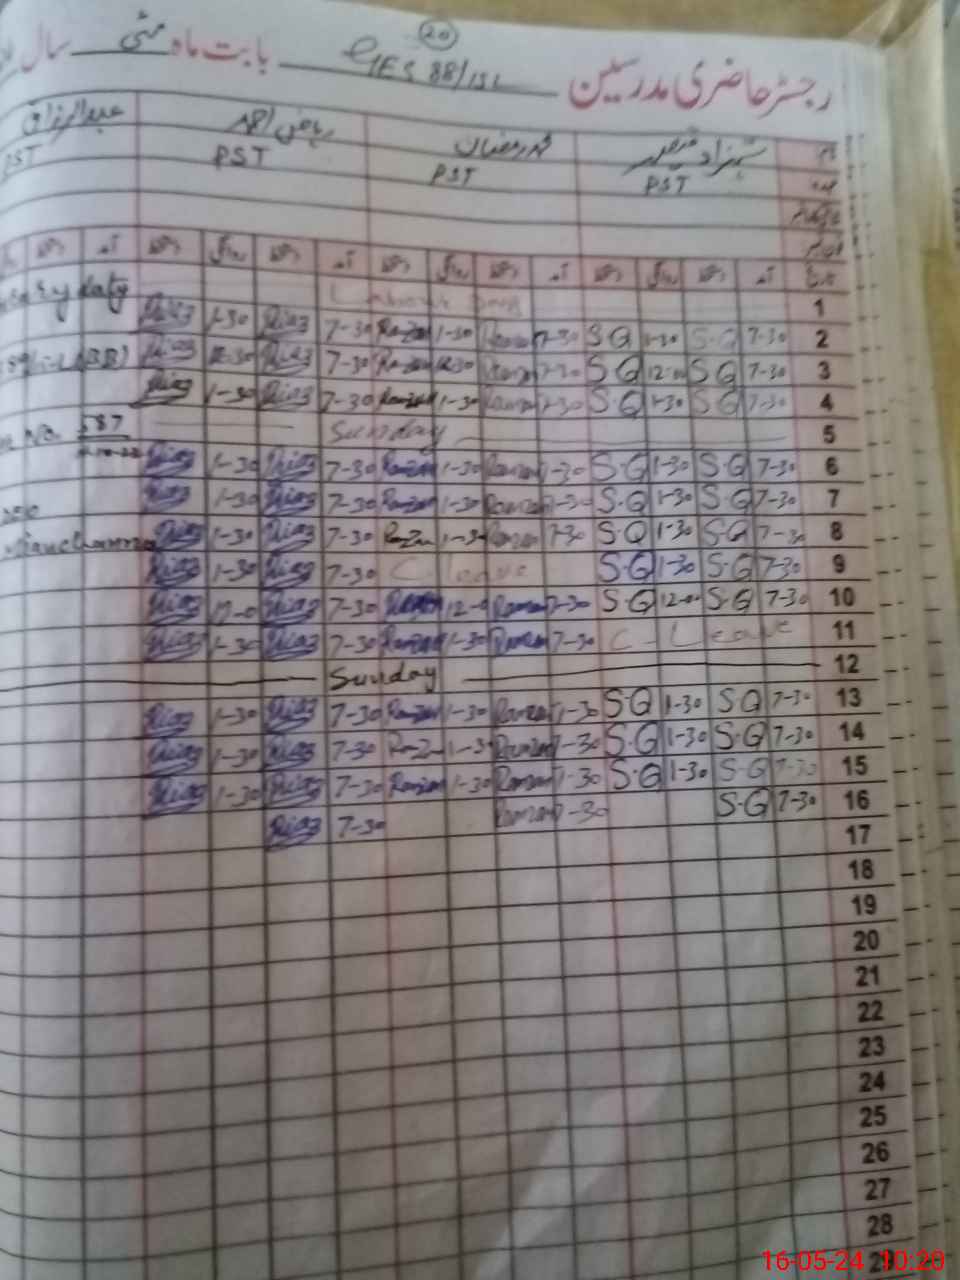 رجسٹر حاضری مدرسین GES 88/15L بابت ماہ مئی سال
20
نام شہزاد قیصر محمد رمضان ریاض احمد عبدالرزاق
عہدہ PST PST PST PST
تاریخ آمد دستخط روانگی دستخط آمد دستخط روانگی دستخط آمد دستخط روانگی دستخط آمد دستخط
1 Labour Day
2 7-30 S.Q 1-30 S.Q 7-30 Ramzan 1-30 Ramzan 7-30 Riaz 1-30 Riaz
3 7-30 S.Q 12-00 S.Q 7-30 Ramzan 12-30 Ramzan 7-30 Riaz 12-30 Riaz
4 7-30 S.Q 1-30 S.Q 7-30 Ramzan 1-30 Ramzan 7-30 Riaz 1-30 Riaz
5 Sunday No. 587
6 7-30 S.Q 1-30 S.Q 7-30 Ramzan 1-30 Ramzan 7-30 Riaz 1-30 Riaz
7 7-30 S.Q 1-30 S.Q 7-30 Ramzan 1-30 Ramzan 7-30 Riaz 1-30 Riaz
8 7-30 S.Q 1-30 S.Q 7-30 Ramzan 1-30 Ramzan 7-30 Riaz 1-30 Riaz
9 7-30 S.Q 1-30 S.Q C. leave 7-30 Riaz 1-30 Riaz
10 7-30 S.Q 12-00 S.Q 7-30 Ramzan 12-0 Ramzan 7-30 Riaz 12-0 Riaz
11 C-Leave 7-30 Ramzan 1-30 Ramzan 7-30 Riaz 1-30 Riaz
12 Sunday
13 7-30 S.Q 1-30 S.Q 7-30 Ramzan 1-30 Ramzan 7-30 Riaz 1-30 Riaz
14 7-30 S.Q 1-30 S.Q 7-30 Ramzan 1-30 Ramzan 7-30 Riaz 1-30 Riaz
15 7-30 S.Q 1-30 S.Q 7-30 Ramzan 1-30 Ramzan 7-30 Riaz 1-30 Riaz
16 7-30 S.Q 7-30 Ramzan 7-30 Riaz
17
18
19
20
21
22
23
24
25
26
27
28
29
16-05-24 10:20